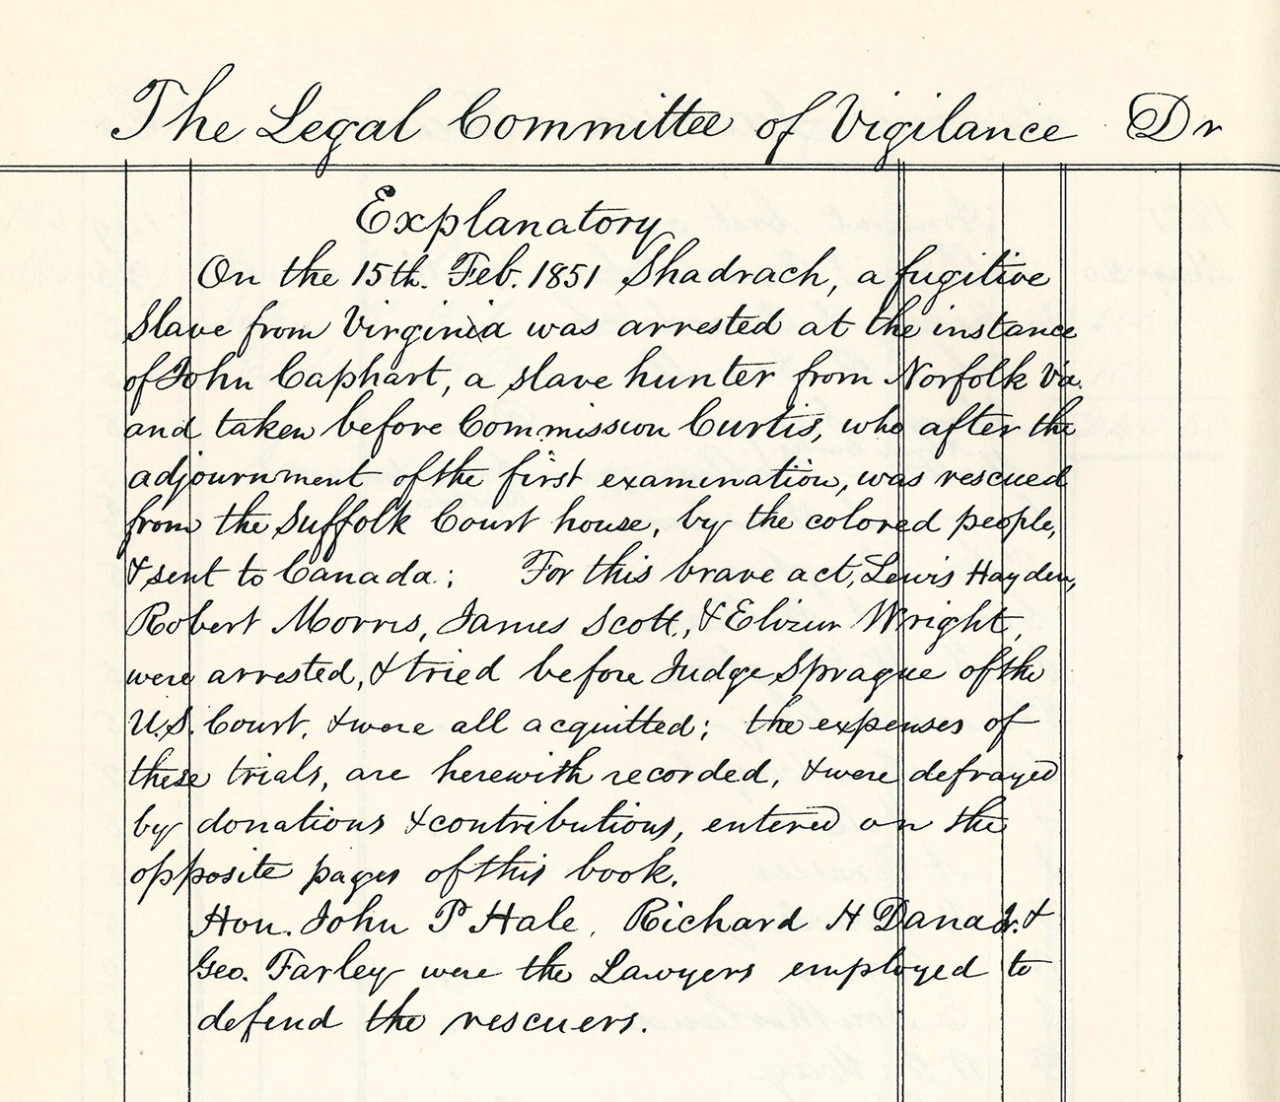 The Legal Committee of Vigilance Dr
Explanatory
On the 15th. Feb. 1851 Shadrach, a fugitive
Slave from Virginia was arrested at the instance
of John Caphart, a slave hunter from Norfolk Va.
and taken before Commission Curtis, who after the
adjournment of the first examination, was rescued
from the Suffolk Court house, by the colored people,
& sent to Canada.; For this brave act, Lewis Hayden,
Robert Morris, James Scott, & Elizur Wright,
were arrested, & tried before Judge Sprague of the
U.S. Court, & were all acquitted; the expenses of
these trials, are herewith recorded, & were defrayed
by donations & contributions, entered on the
opposite pages of this book.
Hon. John P Hale, Richard H Dana Jr. &
Geo. Farley were the Lawyers employed to
defend the rescuers.